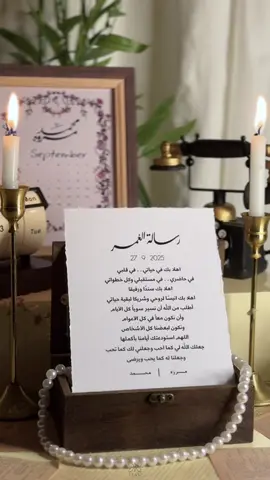 محمد
September
رسالة العمر
27 9 2025
اهلا بك في حياتي.. في قلبي
في حاضري.. في مستقبلي وكل خطواتي
اهلا بك سندًا ورفيقا
اهلا بك انيسًا لروحي وشريكا لبقية حياتي
أطلب من الله أن نسير سويا كل الأيام
وأن نكون معاً في كل الأعوام
ونكون لبعضنا كل الأشخاص
اللهم استودعتك أيامنا بأكملها
جعلك الله لي كما احب وجعلني لك كما تحب
وجعلنا له كما يحب ويرضى
مروه | محمد